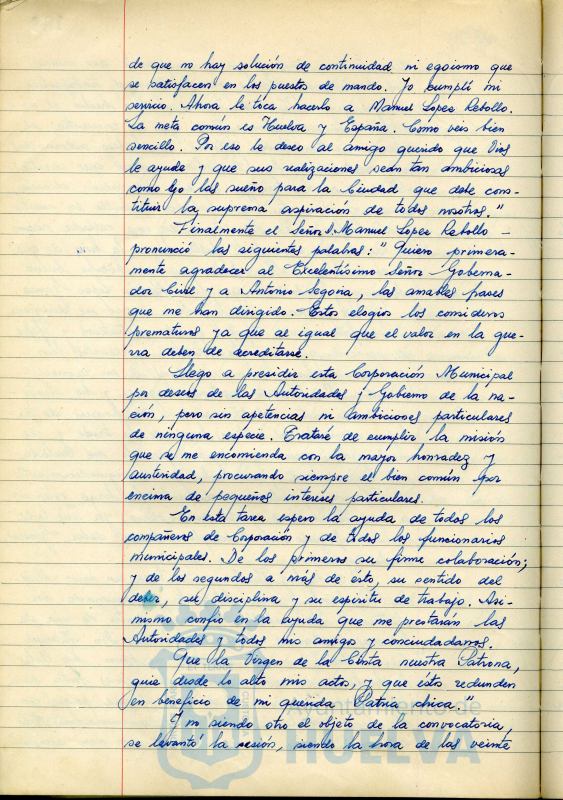 de que no hay solución de continuidad ni egoismo que
se satisfacen en los puestos de mando. Yo cumplí mi
servicio. Ahora le toca hacerlo a Manuel Lopez Rebollo.
La meta común es Huelva y España. Como veis bien
sencillo. Por eso le deseo al amigo querido que Dios
le ayude y que sus realizaciones sean tan ambiciosas
como yo las sueño para la Ciudad que debe cons-
tituir la suprema aspiración de todos nosotros."
Finalmente el Señor D. Manuel Lopez Rebollo -
pronunció las siguientes palabras: "Quiero primera-
mente agradecer al Excelentísimo Señor Goberna-
dor Civil y a Antonio Segovia, las amables frases
que me han dirigido. Estos elogios los considero
prematuros ya que al igual que el valor en la gue-
rra deben de acreditarse.
Llego a presidir esta Corporación Municipal
por deseos de las Autoridades y Gobierno de la na-
ción, pero sin apetencias ni ambiciones particulares
de ninguna especie. Trataré de cumplir la misión
que se me encomienda con la mayor honradez y
austeridad, procurando siempre el bien común por
encima de pequeños intereses particulares.
En esta tarea espero la ayuda de todos los
compañeros de Corporación y de todos los funcionarios
municipales. De los primeros su firme colaboración;
y de los segundos a más de ésto, su sentido del
deber, su disciplina y su espiritu de trabajo. Asi-
mismo confio en la ayuda que me prestarán las
Autoridades y todos mis amigos y conciudadanos.
Que la Virgen de la Cinta nuestra Patrona,
guie desde lo alto mis actos, y que éstos redunden
en beneficio de mi querida Patria chica."
Y no siendo otro el objeto de la convocatoria,
se levantó la sesión, siendo la hora de las veinte
Ayuntamiento de
HUELVA